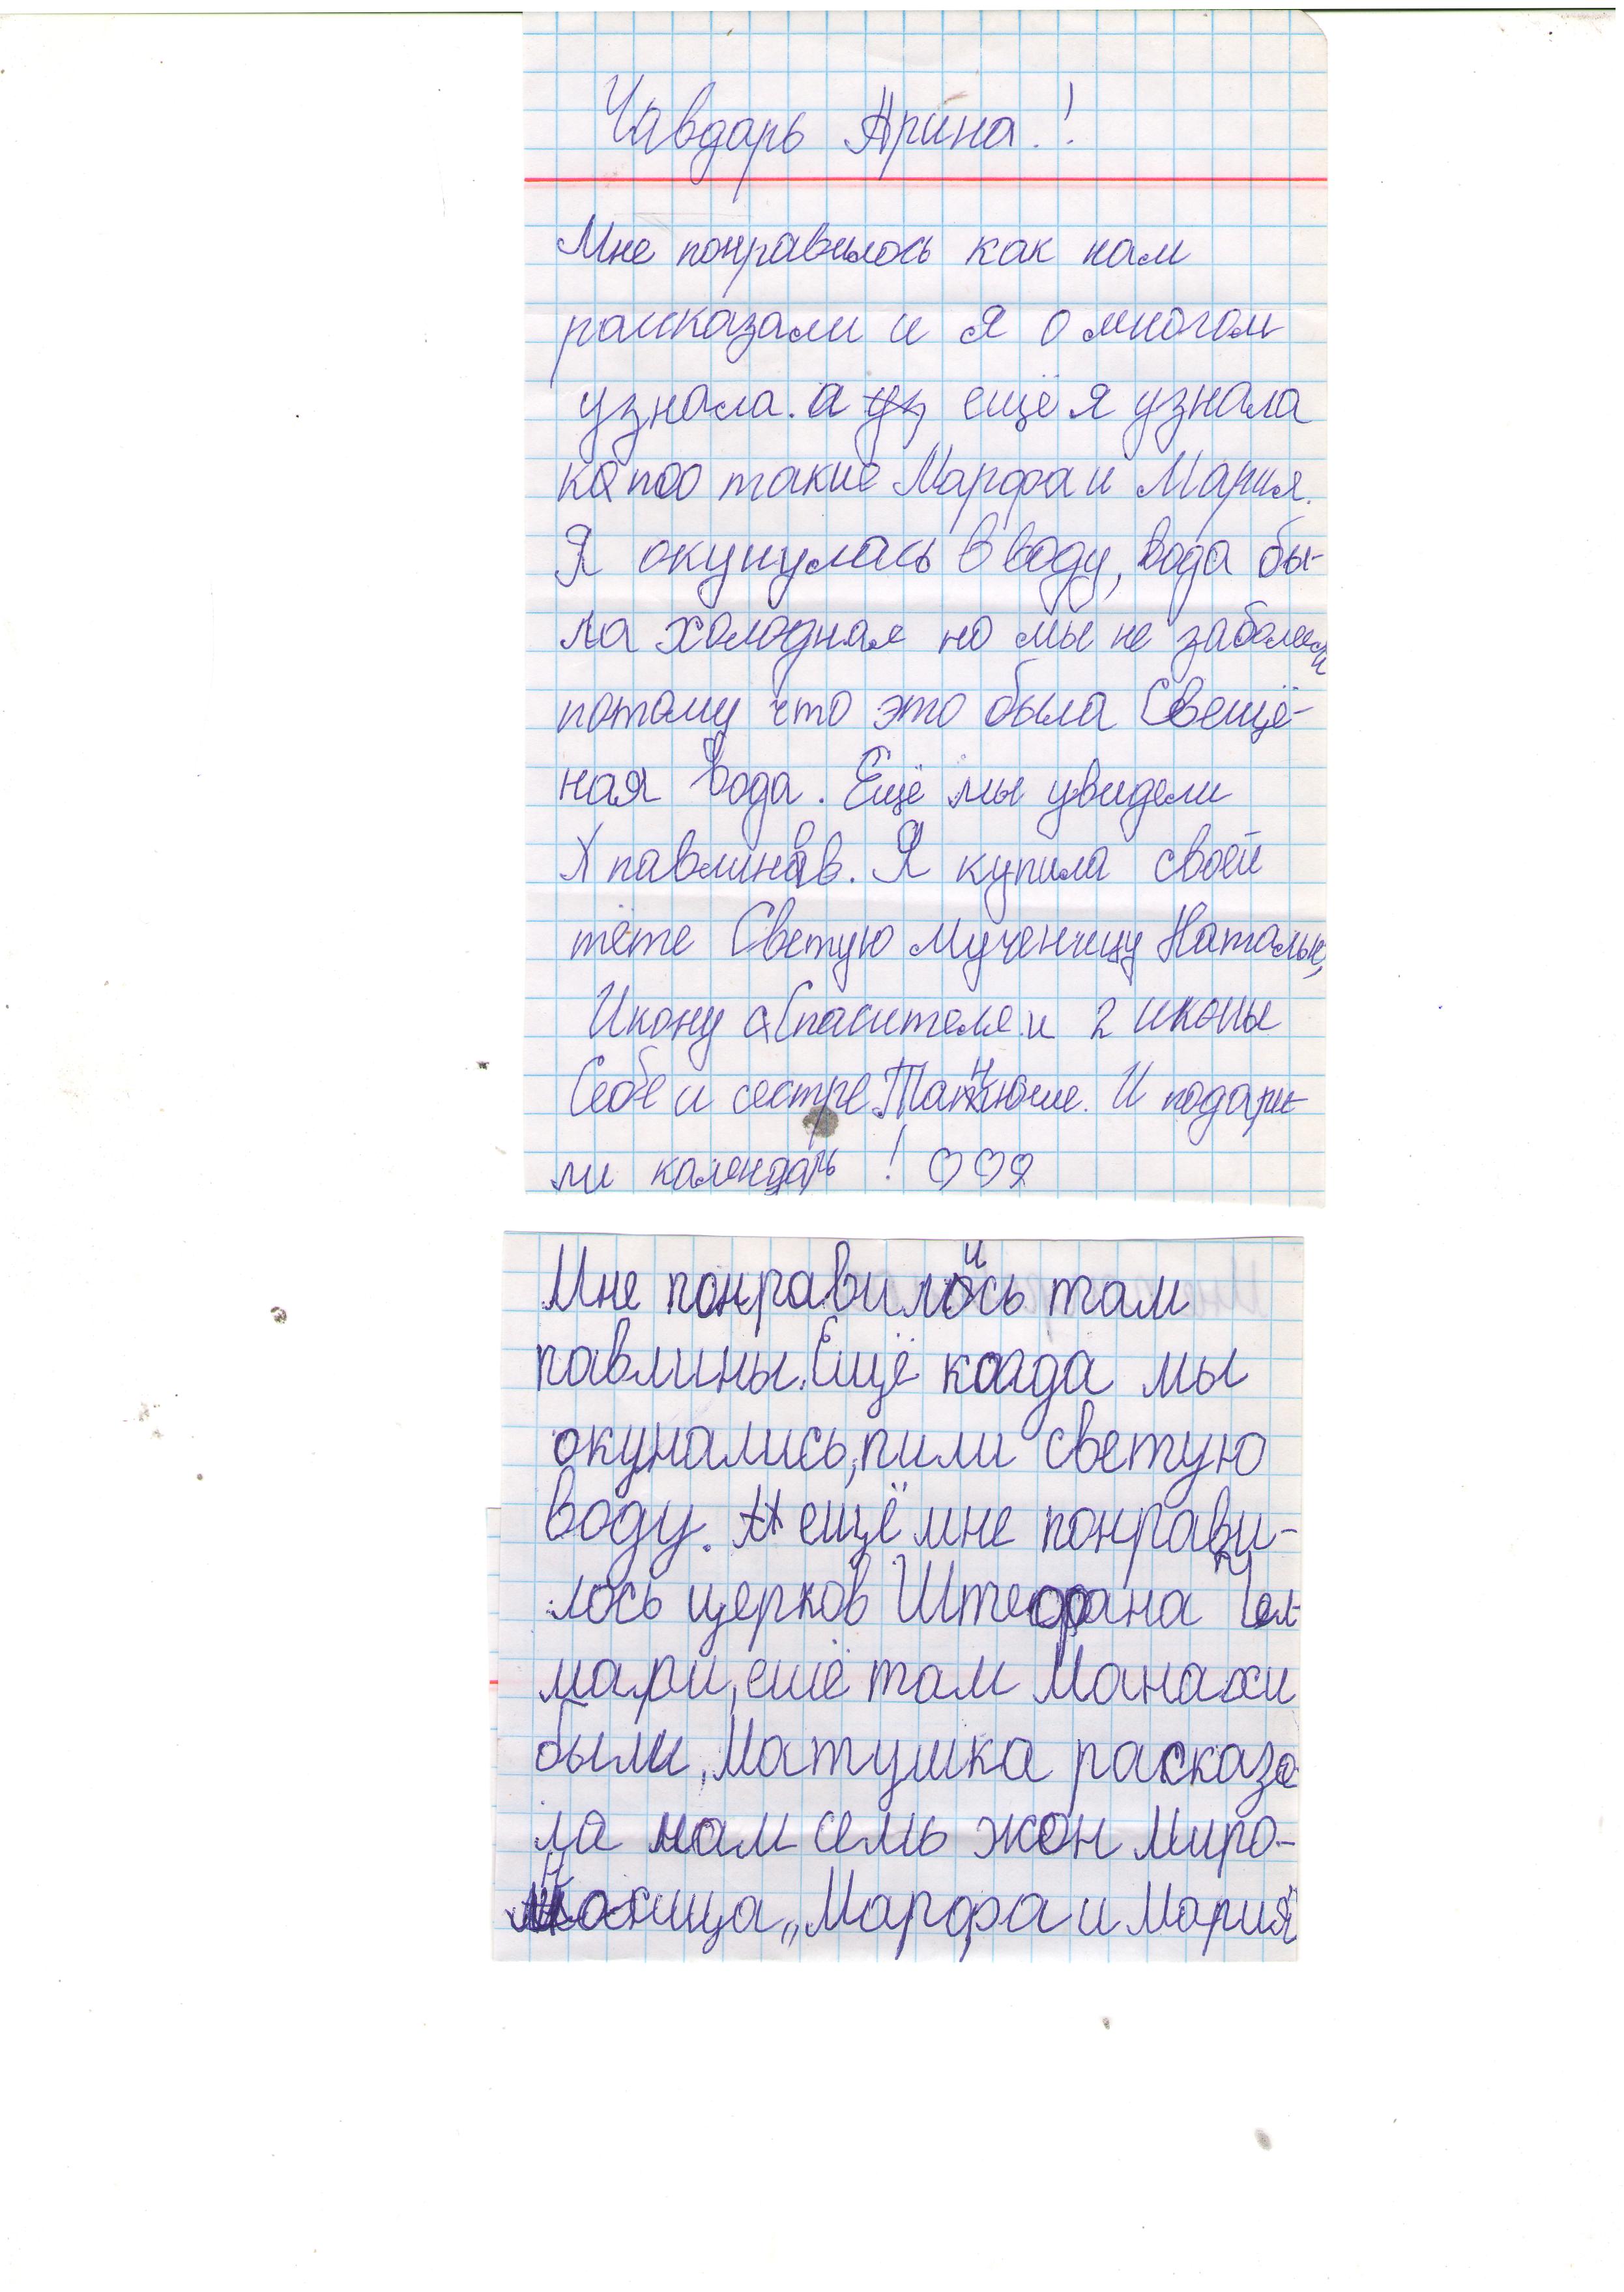 Чавдарь Арина!
Мне понравилось как нам
рассказали и я о многом
узнала. а ещё я узнала
кто такие Марфа и Мария.
Я окунулась в воду, вода бы-
ла холодная но мы не заболели
потому что это была Свещё-
ная вода. Ещё мы увидели
павлинов. Я купила своей
тёте Светую Мученицу Наталью,
Икону Спасителя и 2 иконы
Себе и сестре Танюше. И подари-
ли календарь! ♡♡♡
Мне понравились там
павлины. Ещё когда мы
окунались, пили светую
воду. А ещё мне понрави-
лось церков Штефана Чел
мари, ещё там Манахи
были, Матушка расказа
ла нам семь жон миро-
носица, „Марфа и Мария"